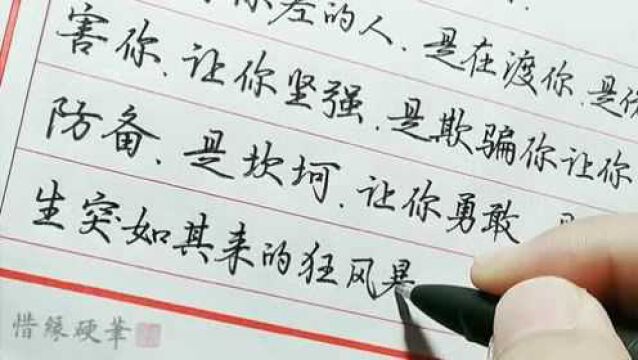 你差的人.是在渡你.是伤
害你.让你坚强.是欺骗你让你
防备.是坎坷.让你勇敢
生突如其来的狂风暴
惜缘硬筆